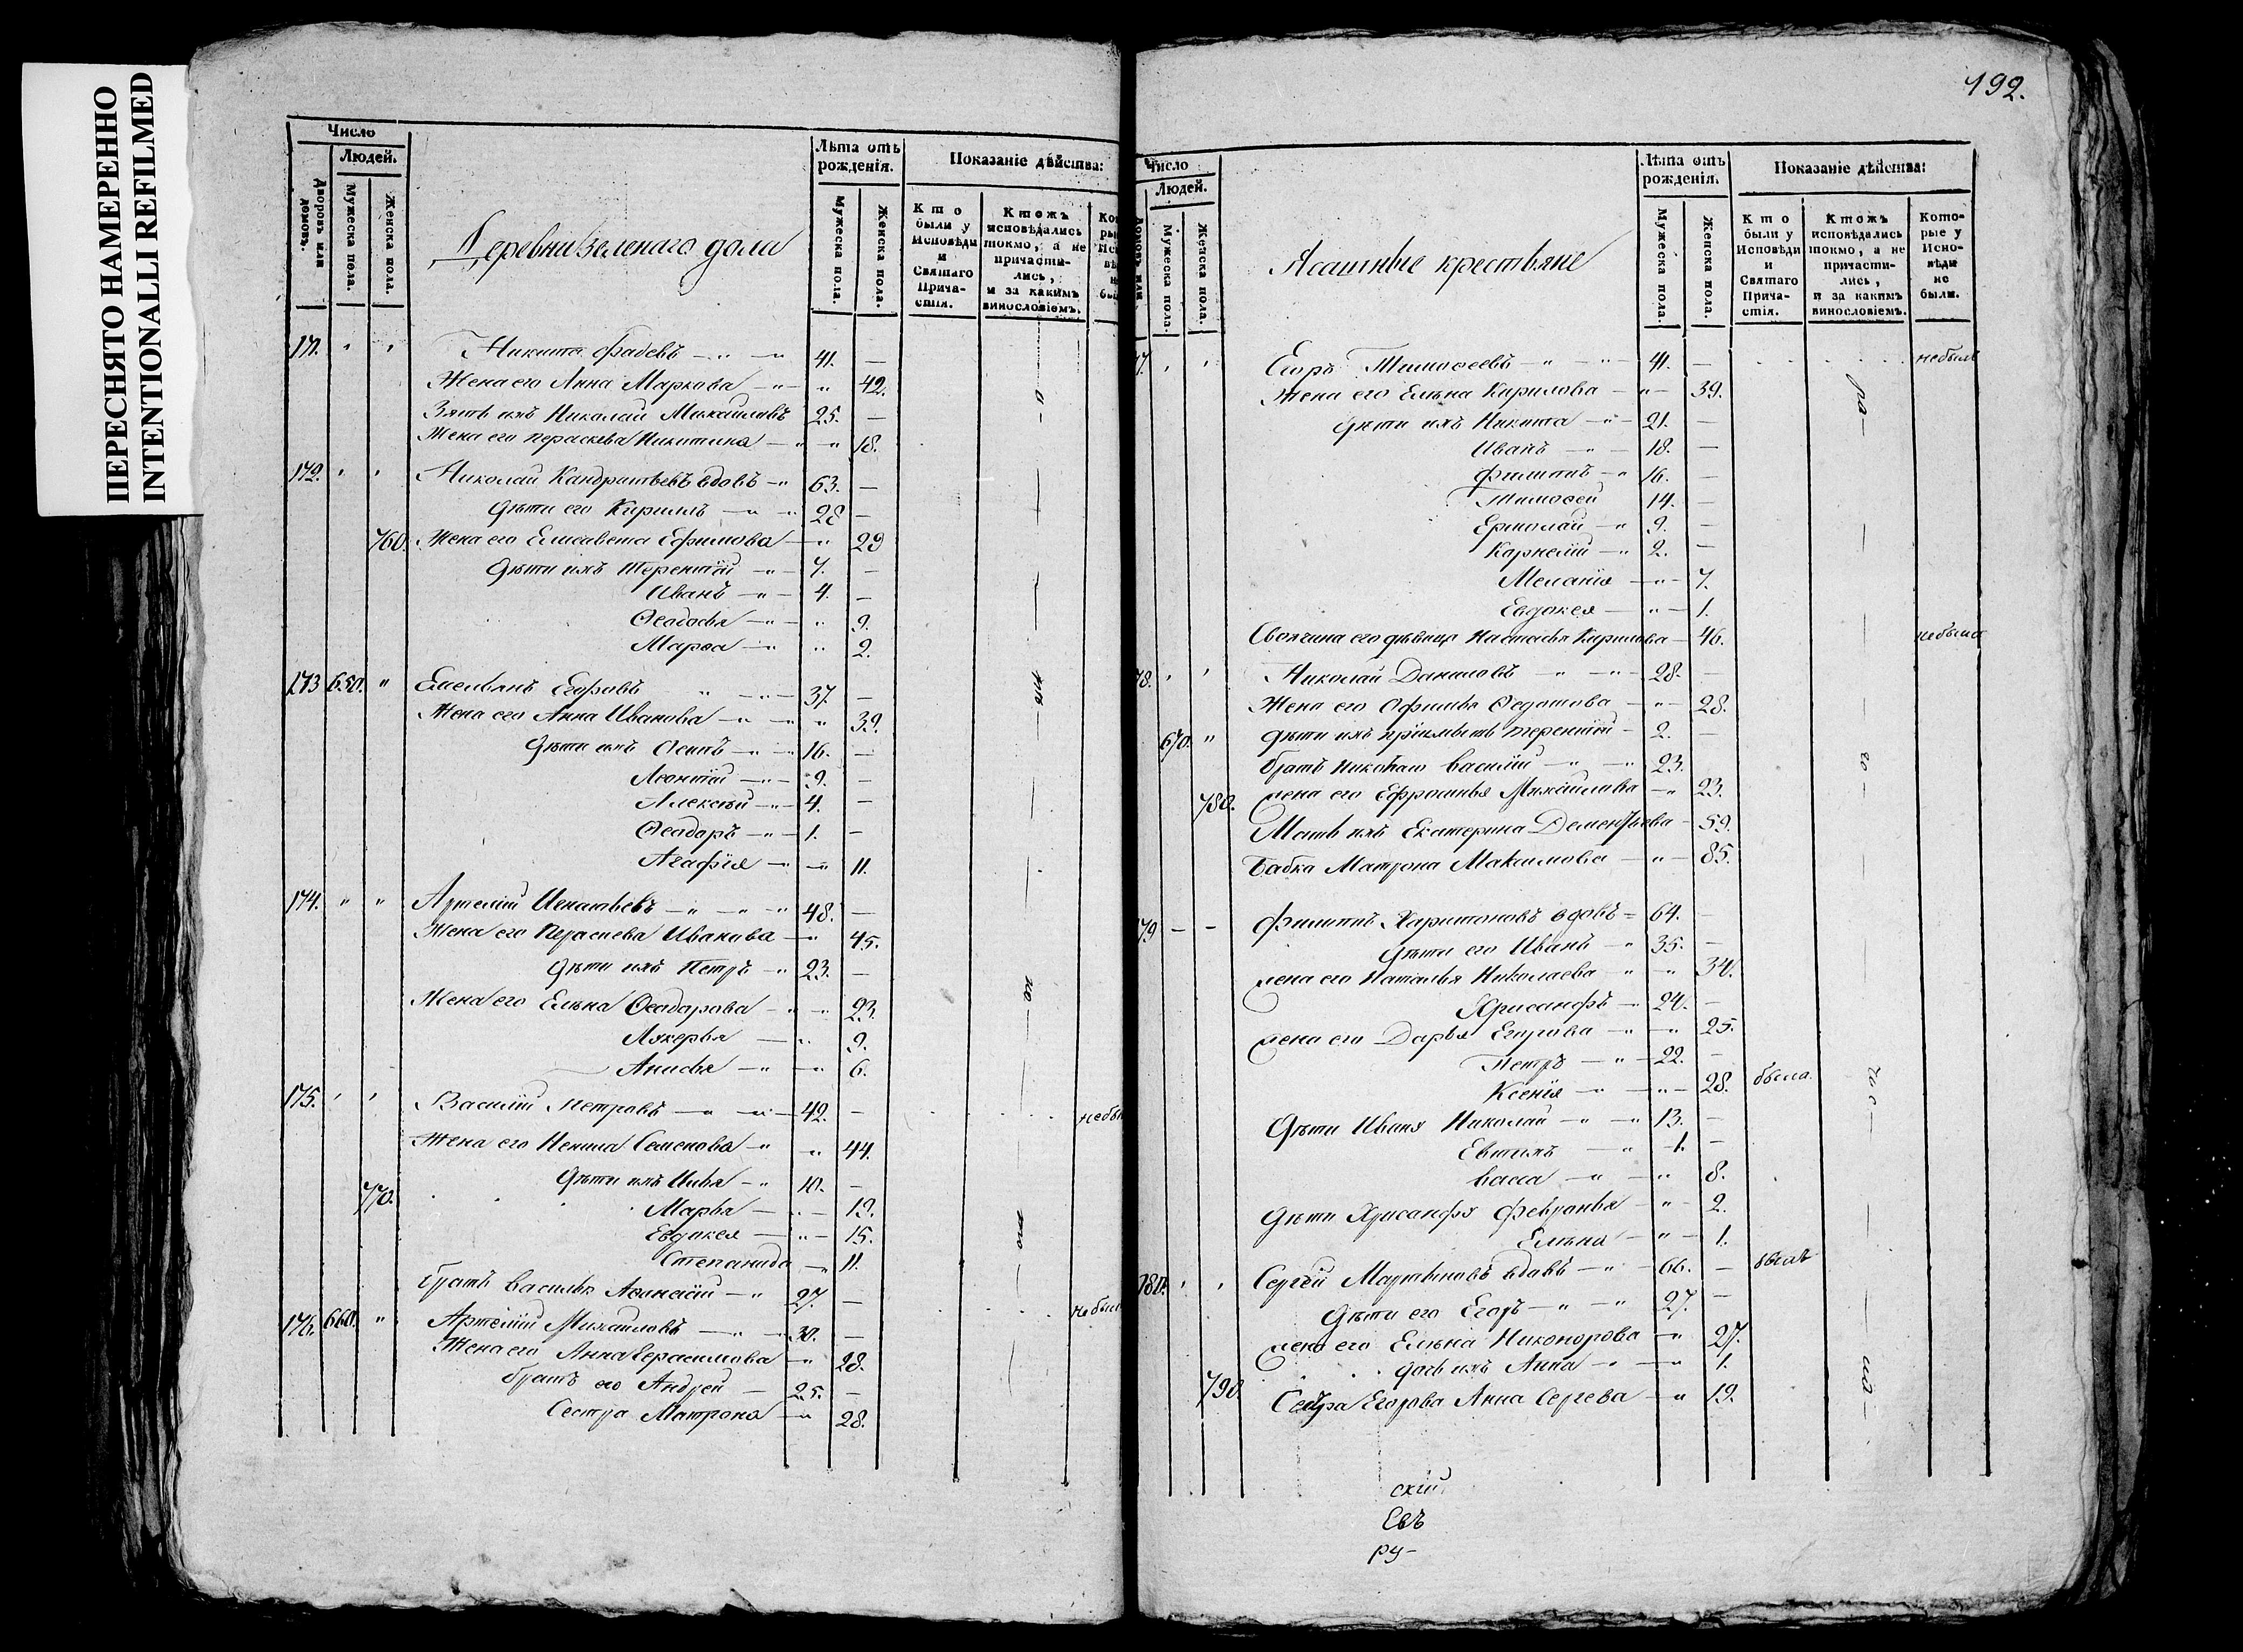 ПЕРЕСНЯТО НАМЕРЕННО
INTENTIONALLI REFILMED
Число
Людей.
Дворовъ или домовъ.
Мужеска пола.
Женска пола.
Деревни зеленаго дола
Лѣта отъ рожденія.
Мужеска пола.
Женска пола.
Показаніе дѣйства:
Кто были у Исповѣди и Святаго Прича-стія.
Ктожъ исповѣдались токмо, а не причасти-лись, и за какимъ винословіемъ.
171. " " Никита Фадеевъ — " — 41. —
Жена его Анна Маркова — " — " 42.
Зять ихъ Николай Михайловъ 25. —
Жена его Пераскева Никитина — " " 18.
172. " " Николай Кандратьевъ вдовъ — " 63. —
Дѣти его Кириллъ — " " 28 —
760. Жена его Елисавета Ефимова — " 29
Дѣти ихъ Терентій — " — 7. —
Иванъ — " — 4. —
Ѳеодосья — " — " 9.
Марѳа — " " 2.
173 650. " Емельянъ Егоровъ " — " — 37 —
Жена его Анна Иванова — " — " 39.
Дѣти ихъ Осипъ — " — " 16. —
Леонтій — " — 9. —
Алексѣй — " — 4. —
Ѳеодоръ — " — 1. —
Агафія — " — " 11.
174. " " Артемій Игнатьевъ — " — " — " 48. —
Жена его Пераскева Иванова — " 45.
Дѣти ихъ Петръ — " 23. —
Жена его Елѣна Ѳеодорова — " — " 23.
Лукерья — " 9.
Анисья — " — " 6.
175. " " Василій Петровъ — " — " — 42. — небы
Жена его Ненила Семенова — " " 44.
Дѣти ихъ Илья — " 10. —
770. Марья — " — 19.
Евдокея — " — 15.
Степанида — " 11.
братъ василья Аѳанасій — " 27. —
176. 660. " Артемій Михайловъ — " — 30. — не был
Жена его Анна Герасимова — " 28.
братъ его Андрей — 25. —
Сестра Матрона — " 28.
192.
Число
Людей.
Мужеска пола.
Женска пола.
Ясашные крестьяне
Лѣта отъ рожденія.
Мужеска пола.
Женска пола.
Показаніе дѣйства:
Кто были у Исповѣди и Святаго Прича-стія.
Ктожъ исповѣдались токмо, а не причасти-лись, и за какимъ винословіемъ.
Кото-рые у Испо-вѣди не были.
77. " " Егоръ Тимоѳеевъ — " — " — 41. — небылъ
Жена его Елѣна Кирилова — " — 39.
Дѣти ихъ Никита — " — 21. —
Иванъ — " — 18. —
Филиппъ — " 16. —
Тимоѳей 14. —
Ермолай — " 9. —
Карнелій — " 2. —
Меланія — " — 7.
Евдокея — " — 1.
Своячина его дѣвица Настасья Кирилова — 46. небыла
78. " " Николай Даниловъ — " — " — 28. —
Жена его Офимья Ѳедотова — " — 28.
670. " Дѣти ихъ пріимышъ Терентій — 2. —
братъ Николаю Василій — " — " — 23.
780. жена его Ефросинья Михайлова — " 23.
Мать ихъ Екатерина Дементьева — 59.
Бабка Матрона Максимова — " — 85.
79 — — Филиппъ Харитоновъ вдовъ — 64. —
Дѣти его Иванъ — " 35. —
жена его Наталья Николаева — " — " 34.
Хрисанфъ — " 24. —
жена его Дарья Егорова — " — " 25.
Петръ — " — 22. —
Ксенія — " — " — 28. была.
Дѣти Ивана Николай — " — " 13. —
Евтихъ — " 1. —
васса — " — " 8.
Дѣти Хрисанфа Февронья — " — 2.
Елѣна — " — 1.
180. " " Сергѣй Мартыновъ вдовъ — " — 66. — былъ
Дѣти его Егоръ — " — " 27. —
жена его Елѣна Никонорова — " 27.
дочь ихъ Анна — " — " 1.
790. Сестра Егорова Анна Сергева — " 19.
скій
Евъ
ру-